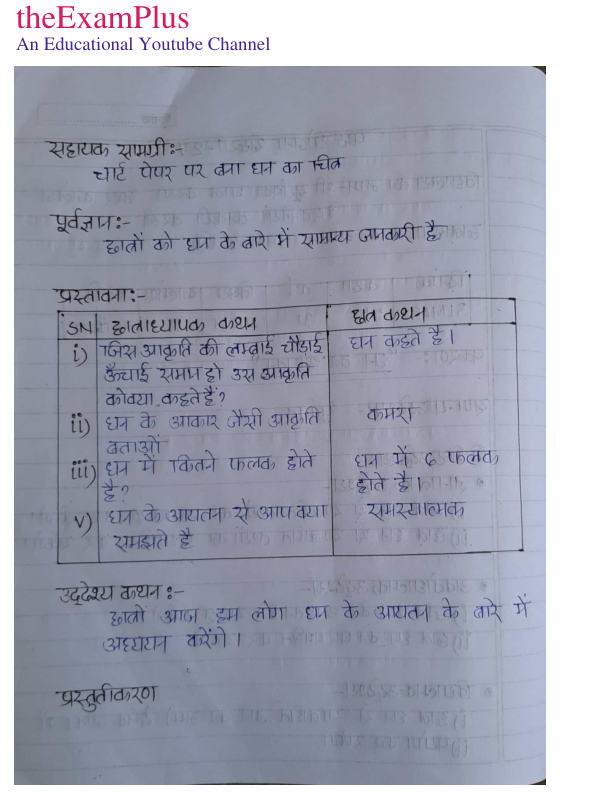 theExamPlus
An Educational Youtube Channel
सहायक सामग्री:-
चार्ट पेपर पर बना घन का चित्र
पूर्वज्ञान:-
छात्रों को घन के बारे में सामान्य जानकारी है
प्रस्तावना:-
SN छात्राध्यापक कथन छात्र कथन
i) जिस आकृति की लम्बाई चौड़ाई घन कहते है।
ऊँचाई समान हो उस आकृति
को क्या कहते हैं?
ii) घन के आकार जैसी आकृति कमरा
बताओं
iii) घन में कितने फलक होते घन में 6 फलक
है? होते है।
v) घन के आयतन से आप क्या समस्यात्मक
समझते है
उद्देश्य कथन:-
छात्रों आज हम लोग घन के आयतन के बारे में
अध्ययन करेंगे।
प्रस्तुतीकरण